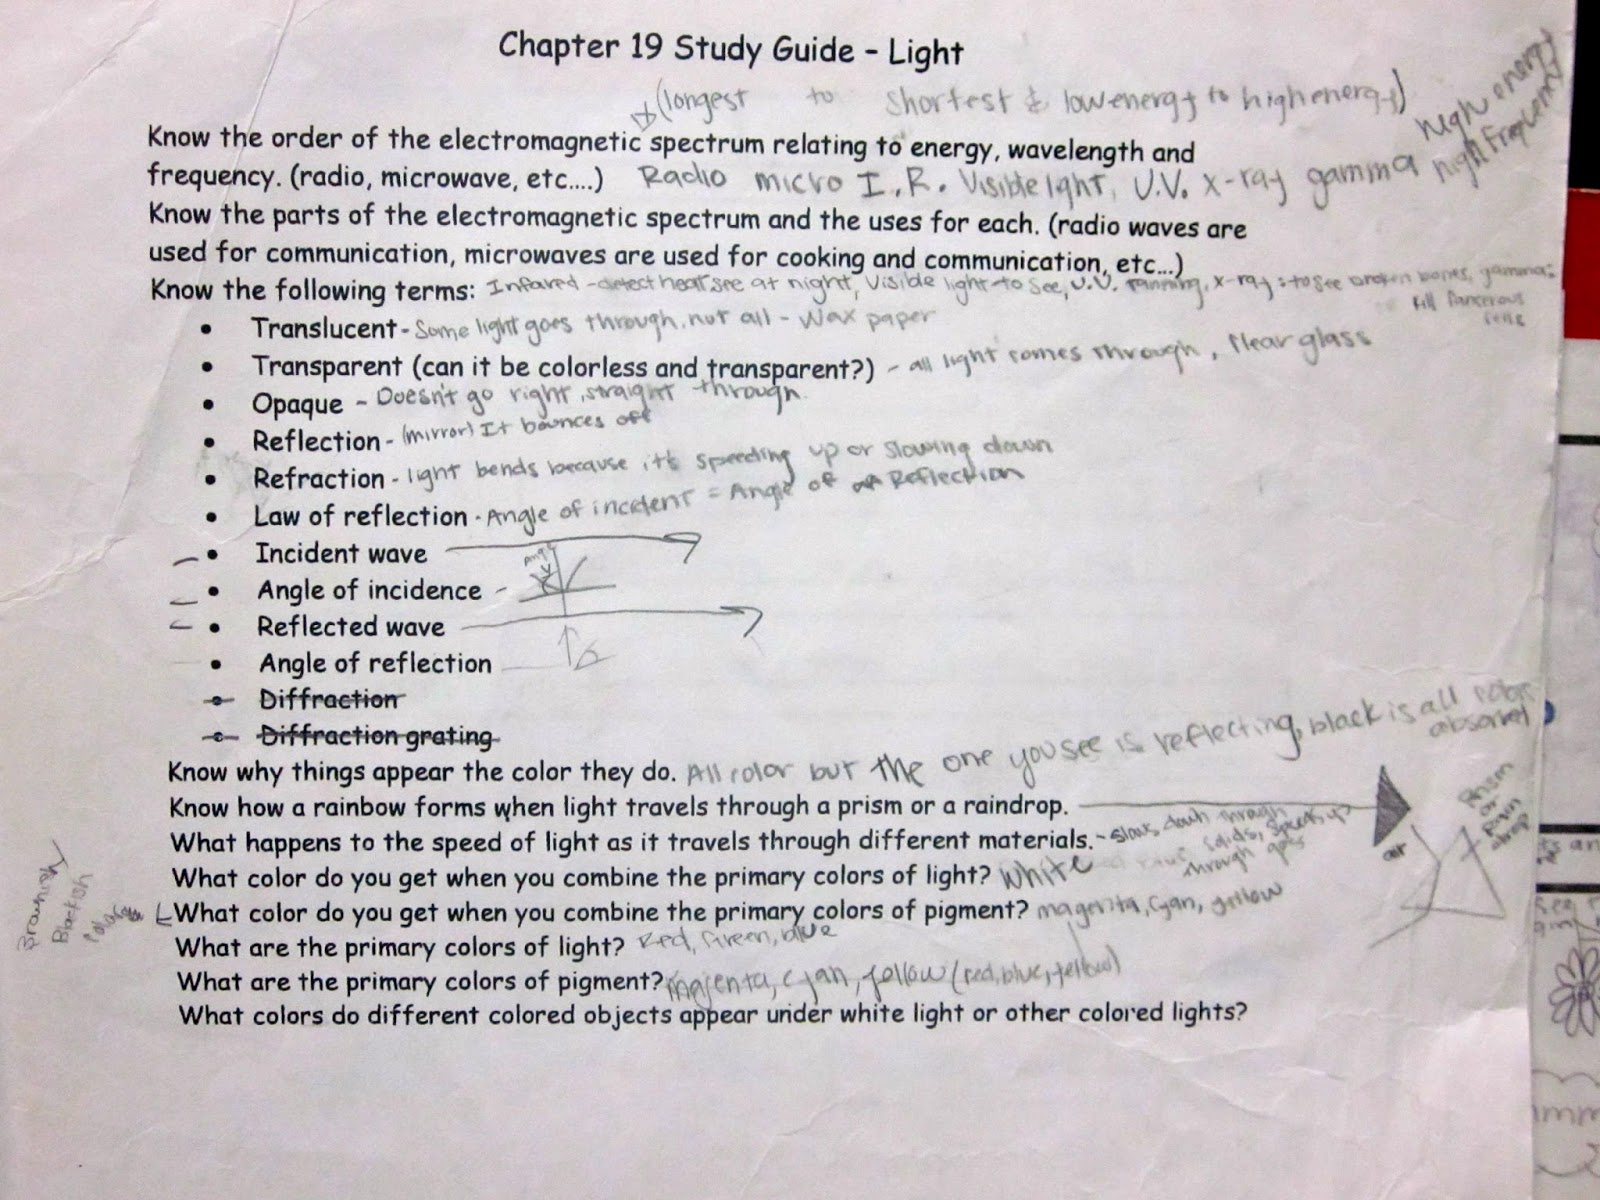 Chapter 19 Study Guide – Light
(longest to shortest & low energy to high energy)
high energy
high frequency
Know the order of the electromagnetic spectrum relating to energy, wavelength and
frequency. (radio, microwave, etc....) Radio micro I.R. Visible light, U.V. x-ray gamma
Know the parts of the electromagnetic spectrum and the uses for each. (radio waves are
used for communication, microwaves are used for cooking and communication, etc...)
Know the following terms: Infared - detect heat, see at night, Visible light-to see, U.V. tanning, x-ray: to see broken bones, gamma:
kill
• Translucent - Some light goes through, not all - Wax paper
• Transparent (can it be colorless and transparent?) - all light comes through, clear glass
• Opaque - Doesn't go right, straight through.
• Reflection - (mirror) It bounces off
• Refraction - light bends because it's speeding up or slowing down
• Law of reflection - Angle of incident = Angle of Reflection
• Incident wave
• Angle of incidence - Angle
• Reflected wave
• Angle of reflection
• Diffraction
• Diffraction grating
Know why things appear the color they do. All color but the one you see is reflecting, black is all colors
Know how a rainbow forms when light travels through a prism or a raindrop.
Prism
or
Rain
drop
air
What happens to the speed of light as it travels through different materials. - slows down through
solids, speeds up
through
What color do you get when you combine the primary colors of light? White
Brownish
Blackish
What color do you get when you combine the primary colors of pigment? magenta, cyan, yellow
What are the primary colors of light? Red, Green, blue
What are the primary colors of pigment? magenta, cyan, yellow (red, blue, yellow)
What colors do different colored objects appear under white light or other colored lights?